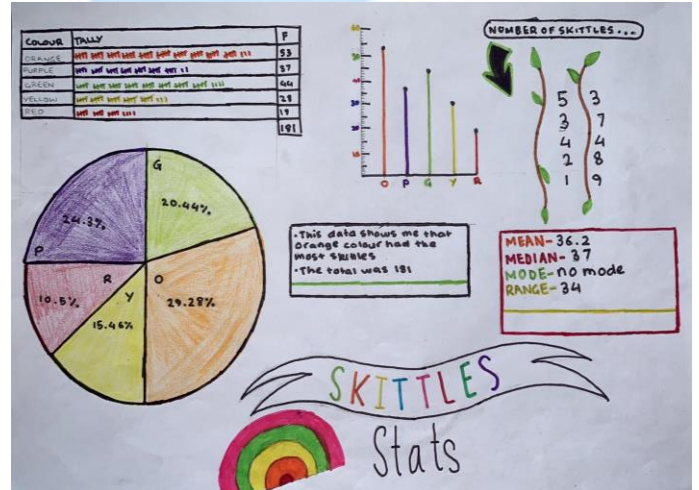 COLOUR TALLY F
ORANGE 53
PURPLE 37
GREEN 44
YELLOW 28
RED 19
181
60
50
40
30
20
10
O P G Y R
NUMBER OF SKITTLES...
5 3
3 7
4 4
2 8
1 9
G
20.44%
24.3%
P
R
10.5%
Y
15.46%
O
29.28%
• This data shows me that
orange colour had the
most skittles
• The total was 181
MEAN- 36.2
MEDIAN- 37
MODE- no mode
RANGE- 34
SKITTLES
Stats